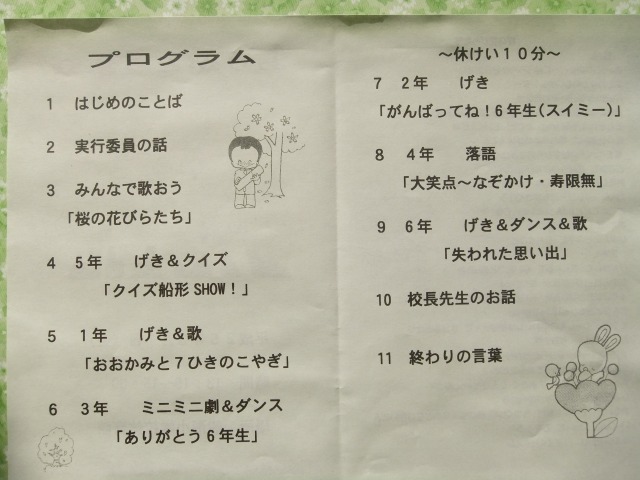 プログラム
1 はじめのことば
2 実行委員の話
3 みんなで歌おう
「桜の花びらたち」
4 5年 げき＆クイズ
「クイズ船形SHOW！」
5 1年 げき＆歌
「おおかみと７ひきのこやぎ」
6 3年 ミニミニ劇＆ダンス
「ありがとう６年生」
～休けい１０分～
7 2年 げき
「がんばってね！６年生（スイミー）」
8 4年 落語
「大笑点～なぞかけ・寿限無」
9 6年 げき＆ダンス＆歌
「失われた思い出」
10 校長先生のお話
11 終わりの言葉